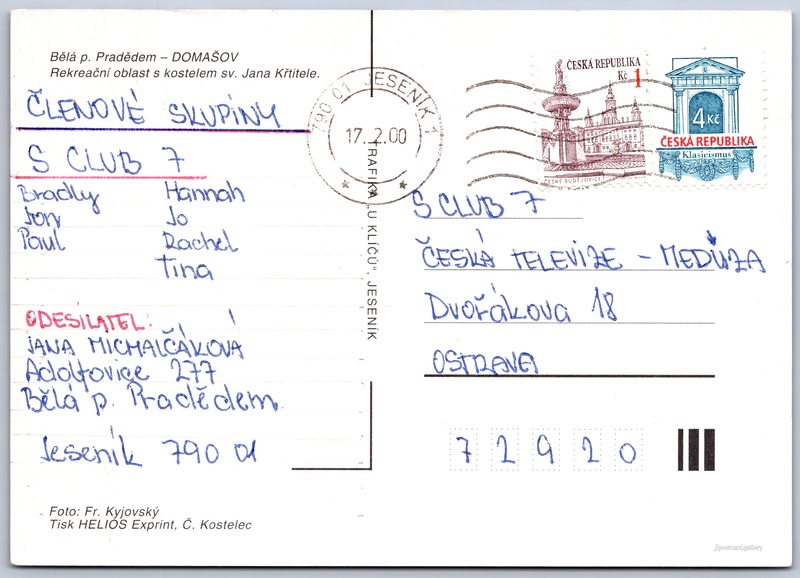 Bělá p. Pradědem – DOMAŠOV
Rekreační oblast s kostelem sv. Jana Křtitele.
ČLENOVÉ SKUPINY
S CLUB 7
Bradly Hannah
Jon Jo
Paul Rachel
Tina
ODESILATEL:
JANA MICHALČÁKOVÁ
Adolfovice 277
Bělá p. Pradědem
Jeseník 790 01
Foto: Fr. Kyjovský
Tisk HELIOS Exprint, Č. Kostelec
TRAFIKA „U KLÍČŮ", JESENÍK
790 01 JESENÍK 1
17.2.00
ČESKÁ REPUBLIKA
Kč 1
ČESKÉ BUDĚJOVICE
4 Kč
ČESKÁ REPUBLIKA
Klasicismus
S CLUB 7
ČESKÁ TELEVIZE – MEDÚZA
Dvořákova 18
OSTRAVA
7 2 9 2 0
//postcard.gallery